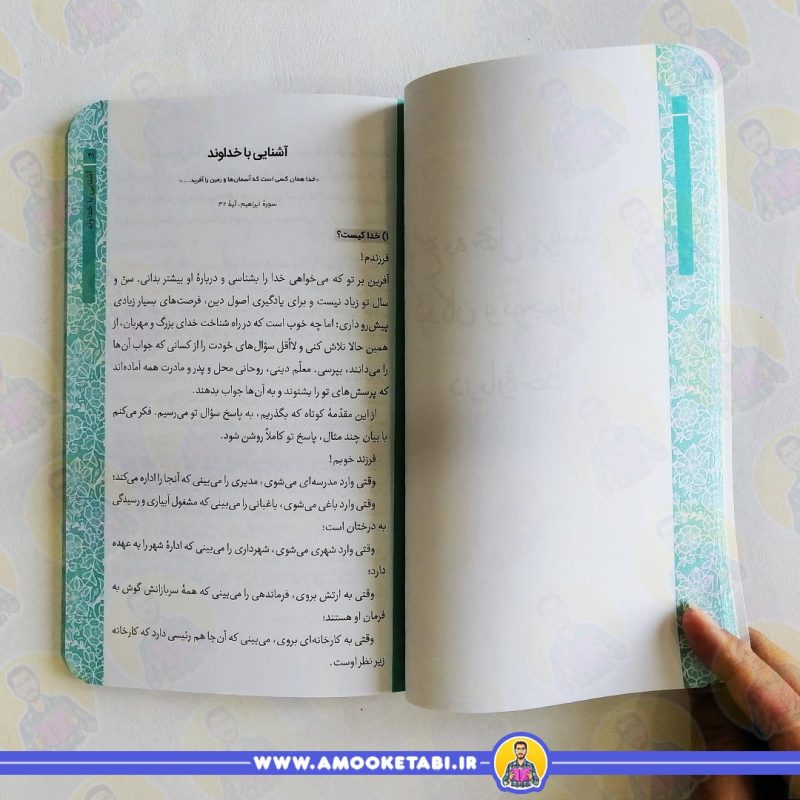 آشنایی با خداوند
«خدا همان کسی است که آسمان‌ها و زمین را آفرید....»
سورهٔ ابراهیم، آیهٔ ۳۲
۱) خدا کیست؟
فرزندم!
آفرین بر تو که می‌خواهی خدا را بشناسی و دربارهٔ او بیشتر بدانی. سنّ و
سال تو زیاد نیست و برای یادگیری اصول دین، فرصت‌های بسیار زیادی
پیش‌رو داری؛ اما چه خوب است که در راه شناخت خدای بزرگ و مهربان، از
همین حالا تلاش کنی و لااقل سؤال‌های خودت را از کسانی که جواب آن‌ها
را می‌دانند، بپرسی. معلّم دینی، روحانی محل و پدر و مادرت همه آماده‌اند
که پرسش‌های تو را بشنوند و به آن‌ها جواب بدهند.
از این مقدّمهٔ کوتاه که بگذریم، به پاسخ سؤال تو می‌رسیم. فکر می‌کنم
با بیان چند مثال، پاسخ تو کاملاً روشن شود.
فرزند خوبم!
وقتی وارد مدرسه‌ای می‌شوی، مدیری را می‌بینی که آنجا را اداره می‌کند؛
وقتی وارد باغی می‌شوی، باغبانی را می‌بینی که مشغول آبیاری و رسیدگی
به درختان است؛
وقتی وارد شهری می‌شوی، شهرداری را می‌بینی که ادارهٔ شهر را به عهده
دارد؛
وقتی به ارتش بروی، فرماندهی را می‌بینی که همهٔ سربازانش گوش به
فرمان او هستند؛
وقتی به کارخانه‌ای بروی، می‌بینی که آن‌جا هم رئیسی دارد که کارخانه
زیر نظر اوست.
آشنایی با خداوند
WWW.AMOOKETABI.IR